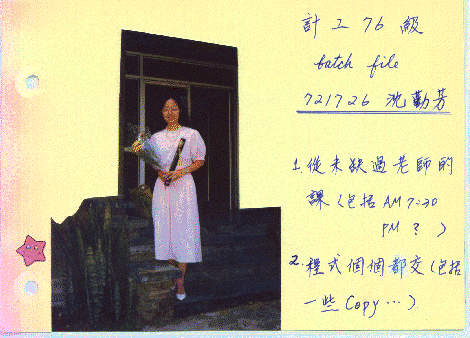 計工76級
batch file
721726 沈勤芳
1. 從未缺過老師的
課(包括AM 7:30
PM ? )
2. 程式個個都交(包括
一些Copy…)